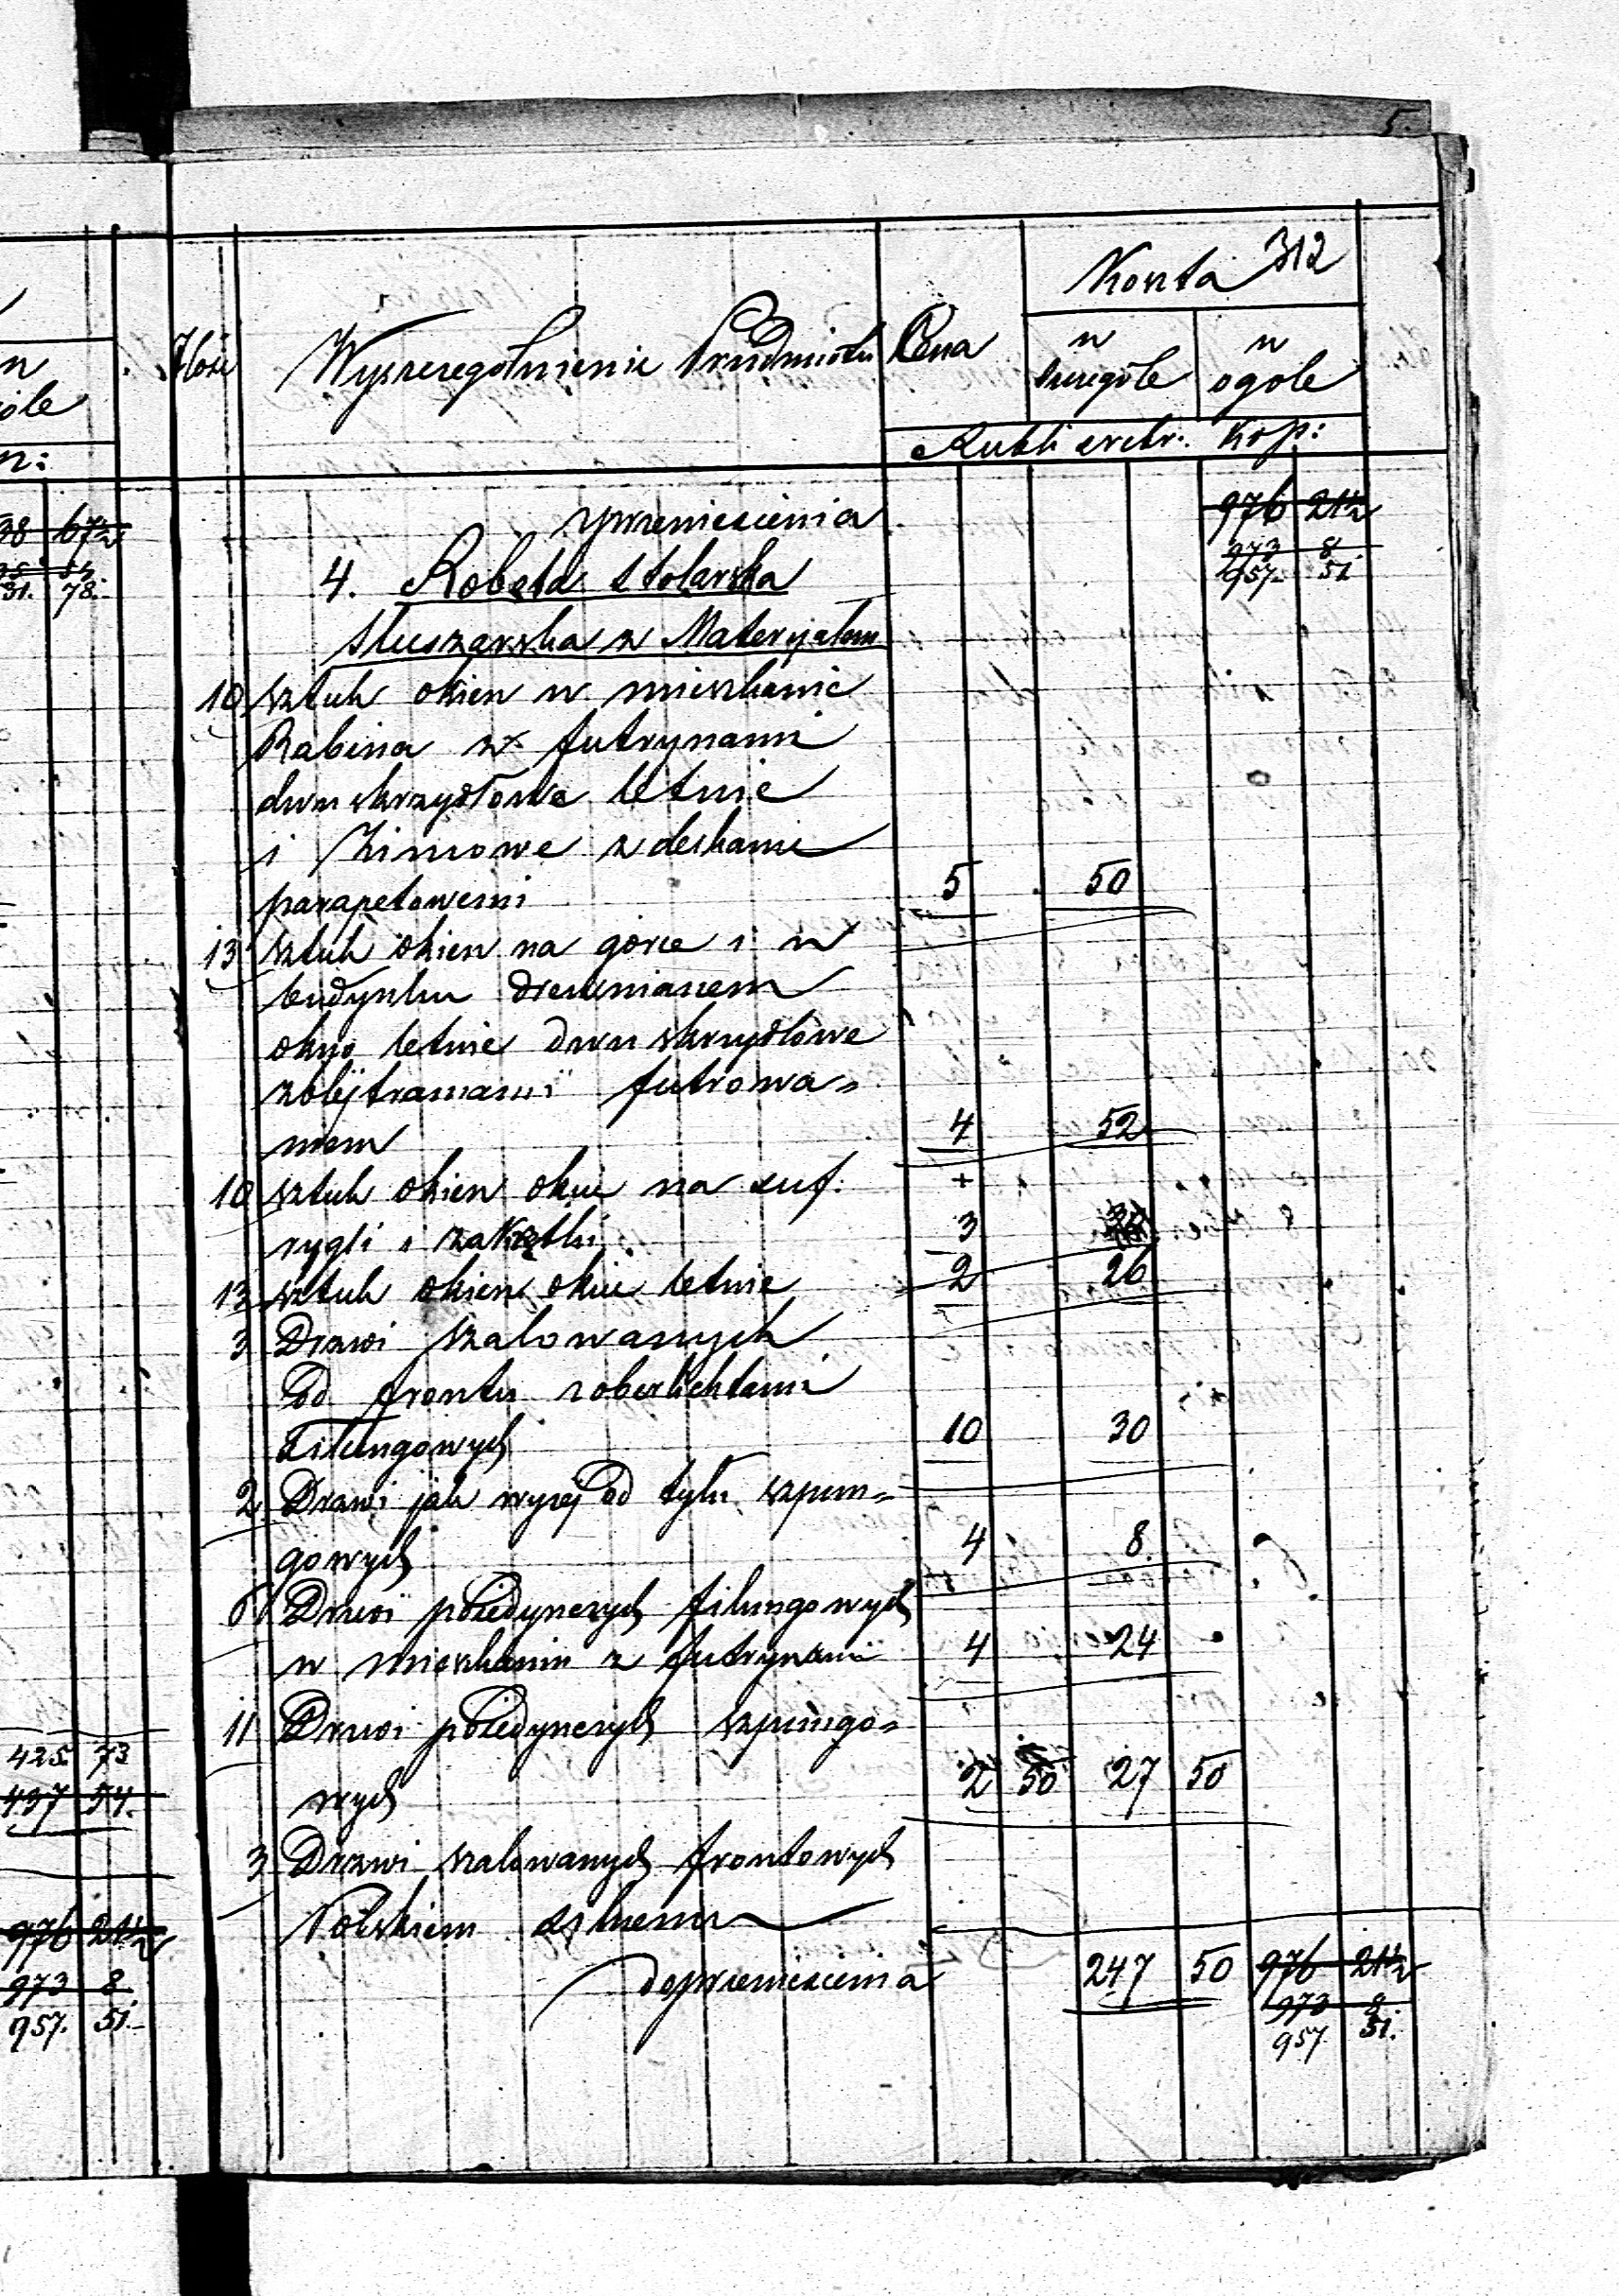 5.
Konta 312
Ilość Wyszczególnienie Przedmiotu Cena w szczególe w ogóle
Rubli srebr: Kop:
z przeniesienia 976 21½
973 8
957 51
4. Robota Stolarska
Ślusarska z Materyałem
10 sztuk okien w mieszkanie
Rabina z futrynami
dwu skrzydłowe letnie
i Zimowe z deskami
parapetowemi 5 50
13 sztuk okien na górce i w
budynku drewnianem
okno letnie dwu skrzydłowe
futrowa=
niem 4 52
10 sztuk okien okuć na suf:
rygli i zakrętki 3
13 sztuk okien okuć letnie 2 26
3 Drzwi szalowanych
Od frontu z oberlichtami
Filungowych 10 30
2 Drzwi jak wyżej Od tyłu szpun=
gowych 4 8
6 Drzwi pojedynczych filungowych
w mieszkaniu z futrynami 4 24
11 Drzwi pojedynczych szpungo=
wych 2 50 27 50
3 Drzwi szalowanych frontowych
do przeniesienia 247 50 976 21½
973 8
957 51.
38 67½
31. 78.
425 73
437 54.
976 21½
973 8
957. 51.